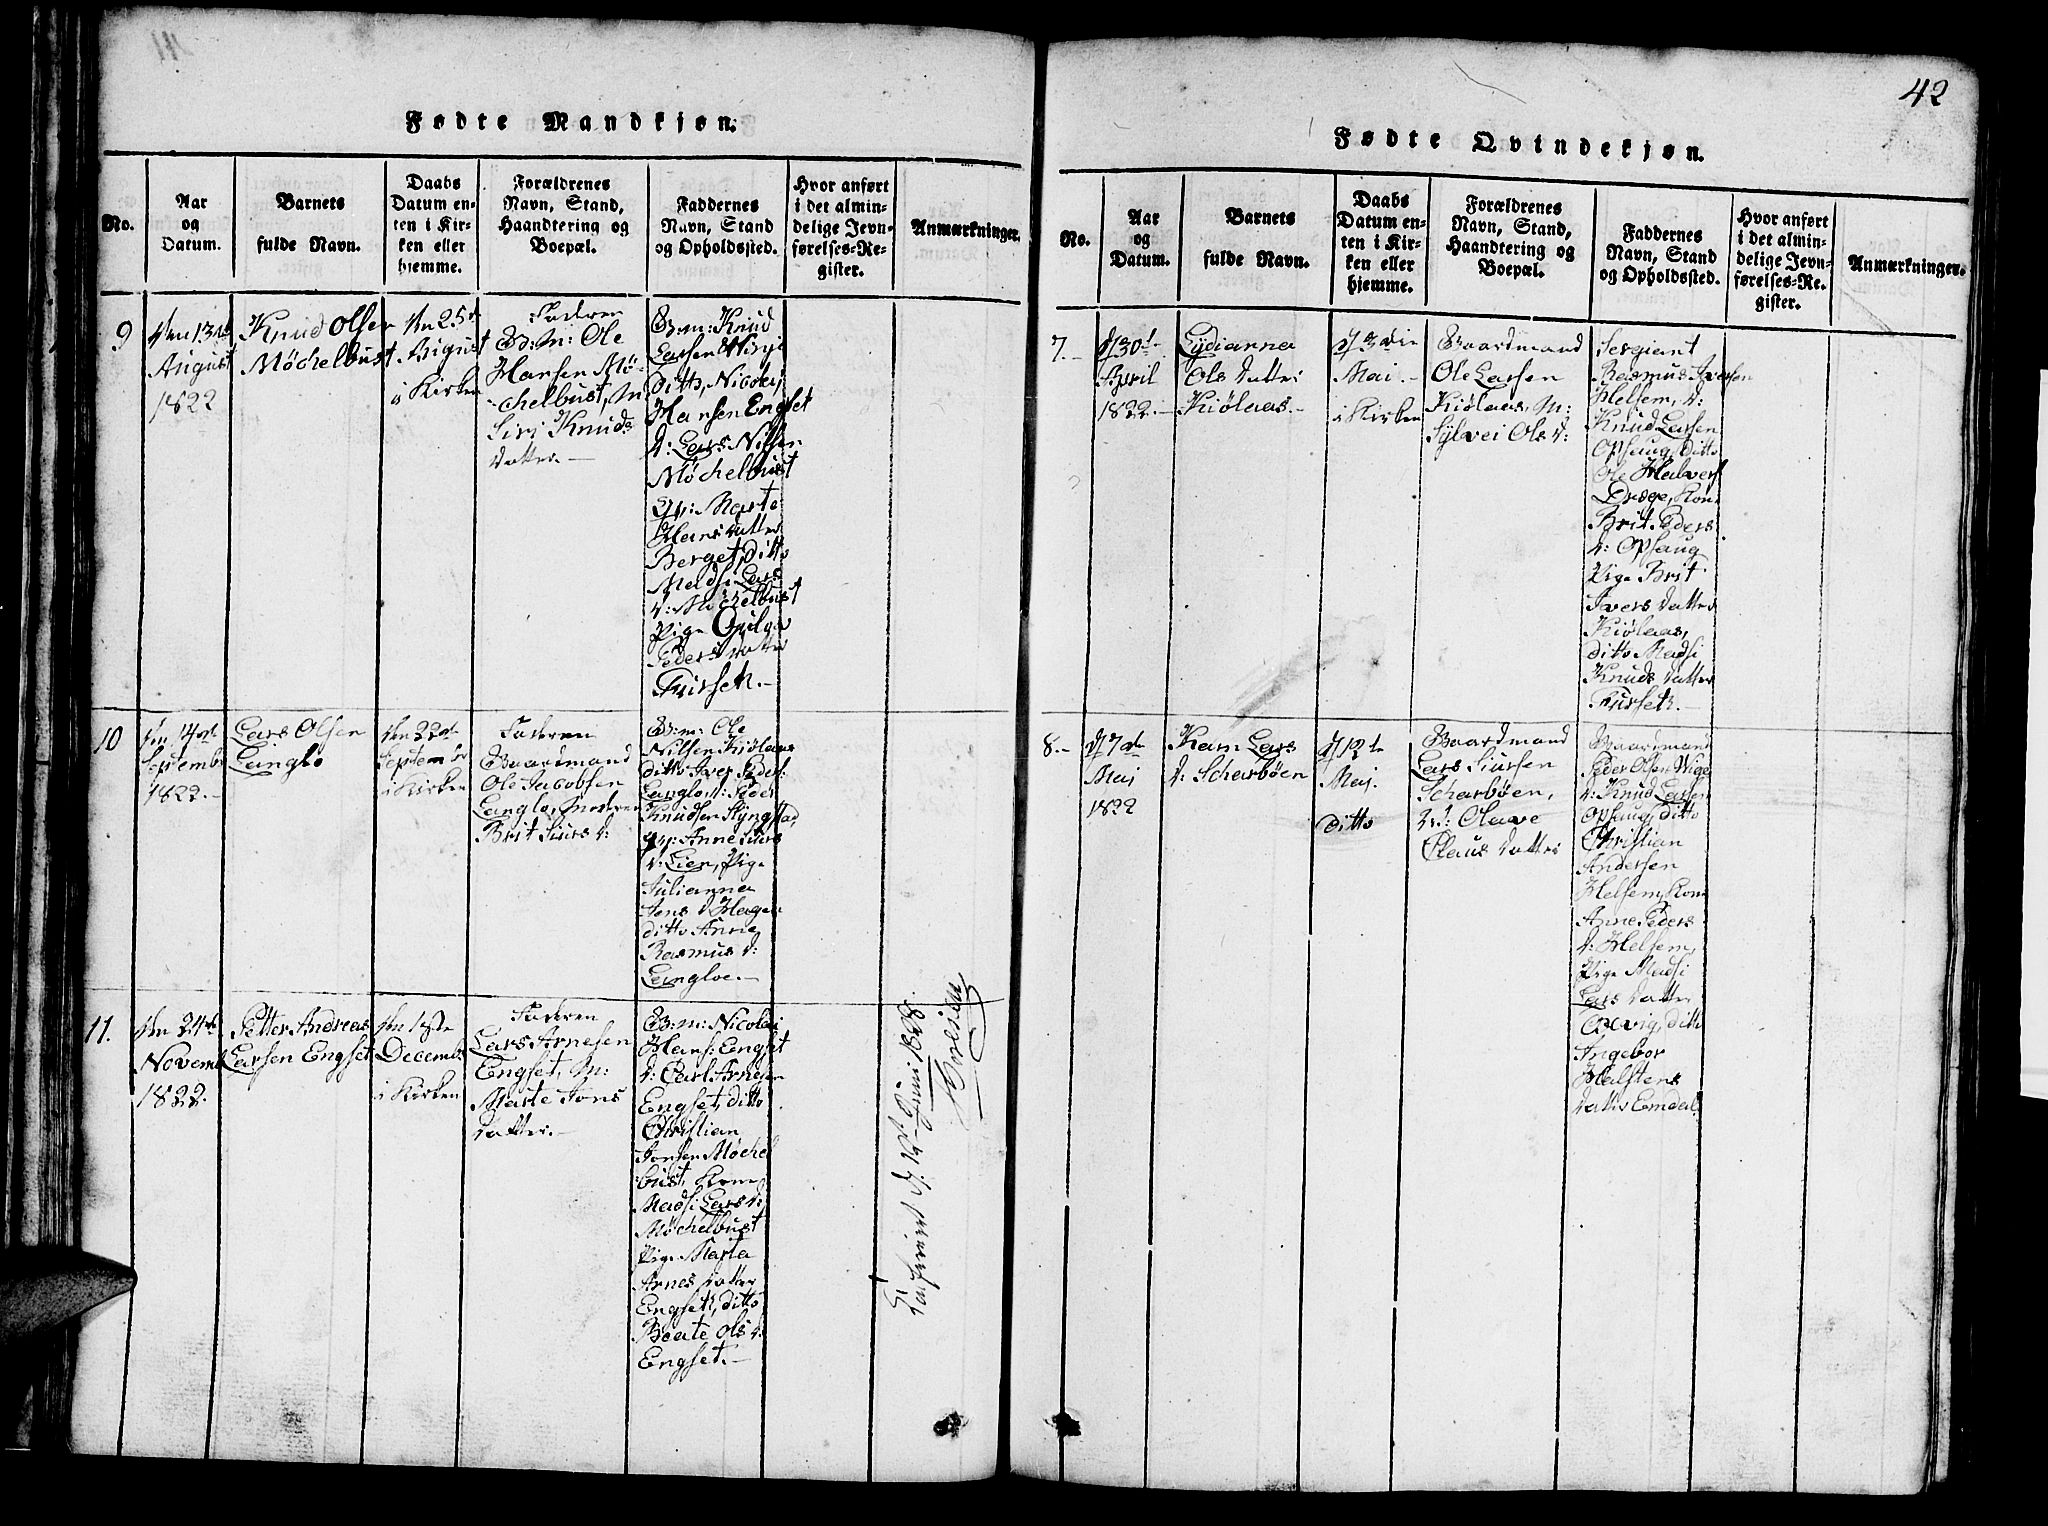 Fødte Mandkjøn.
No.
Aar
og
Datum.
Barnets
fulde Navn.
Daabs
Datum en-
ten i Kir-
ken eller
hjemme.
Forældrenes
Navn, Stand,
Haandtering og
Boepæl.
Faddernes
Navn, Stand
og Opholdssted.
Hvor anført
i det almin-
delige Jevn-
førelses-Re-
gister.
Anmærkninger.
9
den 13de
August
1822
Knud Olsen
Møchelbust
den 25de
August
i Kirken
Faderen
B: M: Ole
Hansen Mø-
chelbust, M.
Siri Knuds
datter. -
B: m: Knud
Larsen
ditto, Nicolaj
Hansen Engset
d: Lars Nilsen
Møchelbust
Marte
Hansdatter
Berget, ditto
Madsi Lars
d: Møchelbust
Pige
Peders datter
Furseth. -
10
den 14de
Septembr
1822. -
Lars Olsen
Langlo
den 22de
Septembr
i Kirken
Faderen
Baardmand
Ole Jacobsen
Langlo, Moderen
Brit Siurs d:
B: m: Ole
Nilsen Kiølaas
ditto Iver Peders:
Langlo, d: Peder
Knudsen Styngstad,
Anne Siurs
d: Lien, Pige
Julianna
Jons d: Hagen
ditto Anne
Rasmus d:
Langloe. -
11.
den 24de
Novemb
1822.
Petter Andreas
Larsen Engset
den 1ste
Decembr
i Kirken
Faderen
Lars Arnesen
Engset, M:
Marte Jons
datter. -
B: m: Nicolai
Hans: Engset
d: Carl Arnesen
Engset, ditto
Christian
Jonsen Møchel
bust, Kone
Madsi Lars d:
Møchelbust
Pige Marta
Arnes datter
Engseth, ditto
Beate Ols d:
Engset. -
Juni 1828.
42
Fødte Qvindekjøn.
No.
Aar
og
Datum.
Barnets
fulde Navn.
Daabs
Datum en-
ten i Kir-
ken eller
hjemme.
Forældrenes
Navn, Stand,
Haandtering og
Boepæl.
Faddernes
Navn, Stand
og Opholdssted.
Hvor anført
i det almin-
delige Jevn-
førelses-Re-
gister.
Anmærkninger.
7. -
d 30te
April
1822. -
Lydianna
Ols datter
Kiølaas. -
d 3die
Mai. -
i Kirken
Baardmand
Ole Larsen
Kiølaas, M:
Sylvei Ols d:
Sergiant
Rasmus Iversen
Helsem, d:
Knud Larsen
Opsaug, ditto
Ole Halvors
Drøge, Kone
Brit Peders
d: Opsaug
Pige Brit
Ivers datter
Kiølaas,
ditto Madsi
Knuds datter
Furseth. -
8. -
d 7de
Maj
1822
Karn Lars
d: Scharbøen
d 12te
Maj.
ditto
Baardmand
Lars Siursen
Scharbøen,
M: Olave
Claus datter
Baardmand
Peder Olsen Wige
d: Knud Larsen
Opsaug, ditto
Christian
Andersen
Helsem, Kone
Anne Peders
d: Helsem,
Pige Madsi
Lars datter
ditto
Angebor
Halstens
datter Emdal